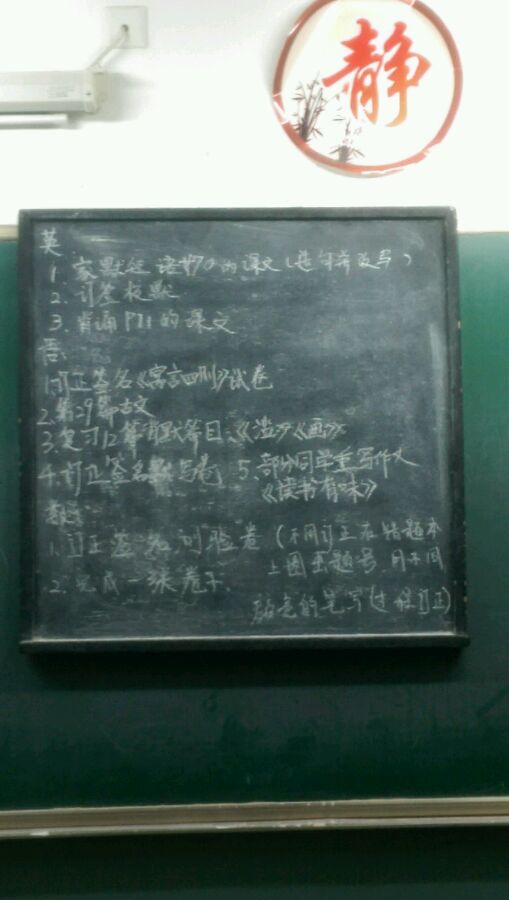 静
英
1. 家默经 语书70的课文(逐句并改写)
2. 订签校默
3. 背诵P71的课文
语:
1.订正签名《寓言四则》试卷
2.第29篇古文
3.复习12篇 篇目:
4.订正签名默写卷 5.部分同学重写作文
《读书有味》
数:
1.订正签名测验卷(不用订正在错题本
上圈出题号 用不同
2.完成一张卷子.
颜色的笔写(过程订正)